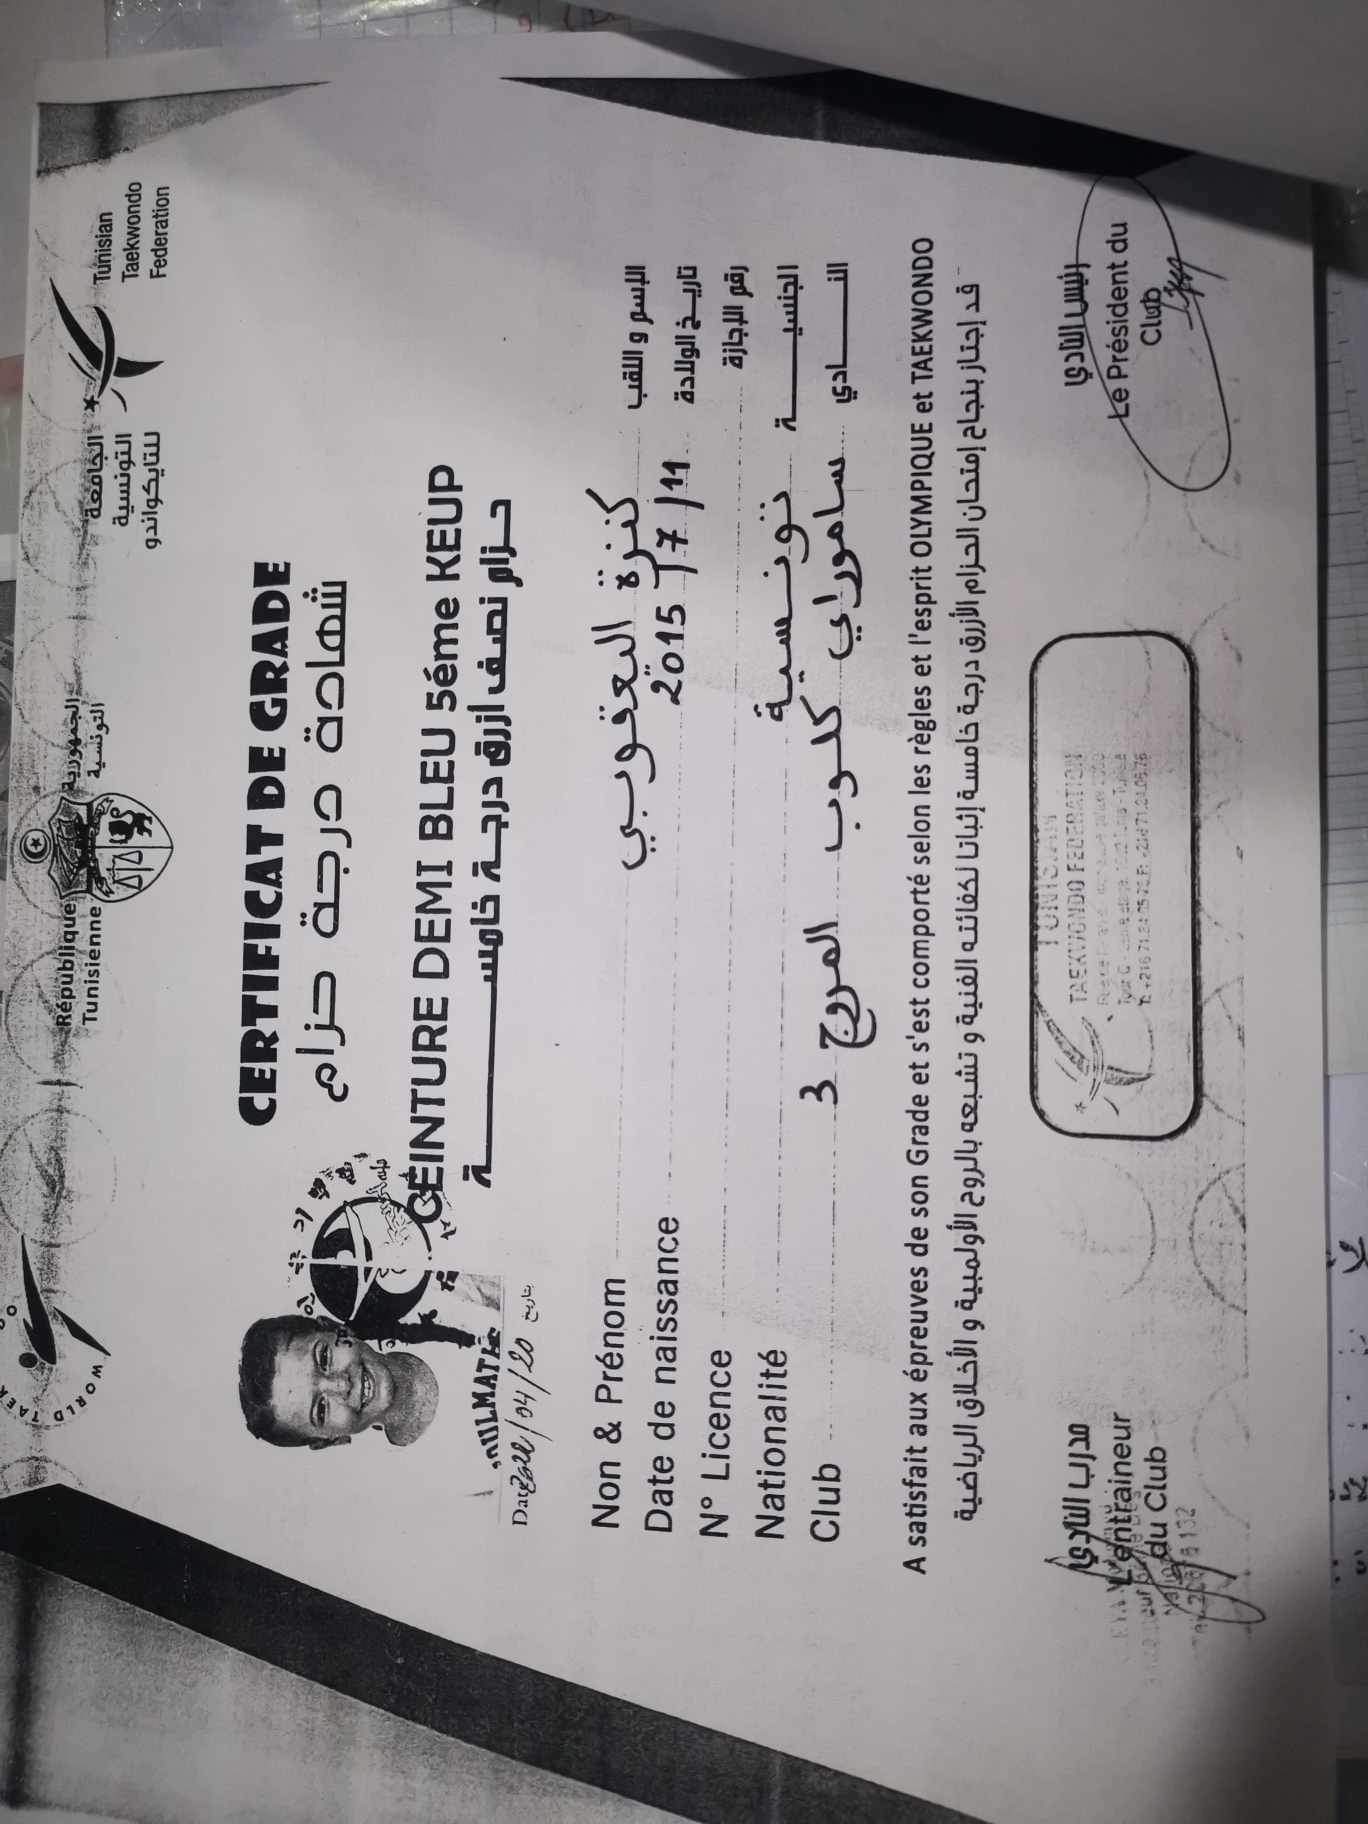 WORLD TAEK
République
Tunisienne
الجمهورية
التونسية
الجامعة
التونسية
للتايكواندو
Tunisian
Taekwondo
Federation
CERTIFICAT DE GRADE
شهادة درجة حزام
CEINTURE DEMI BLEU 5éme KEUP
حزام نصف أزرق درجة خامســـــة
2022/04/20 بتاريخ
Non & Prénom كنزة اليعقوبي الإسم و اللقب
Date de naissance 2015/7/11 تاريخ الولادة
N° Licence رقم الإجازة
Nationalité تونسية الجنسيـــــة
Club سامواراي كلوب المروج 3 النـــــادي
A satisfait aux épreuves de son Grade et s'est comporté selon les règles et l'esprit OLYMPIQUE et TAEKWONDO
قد إجتاز بنجاح إمتحان الحزام الأزرق درجة خامسة إثباتا لكفائته الفنية و تشبعه بالروح الأولمبية و الأخلاق الرياضية
مدرب النادي
L'entraineur
du Club
TUNISIAN
TAEKWONDO FEDERATION
رئيس النادي
Le Président du
Club